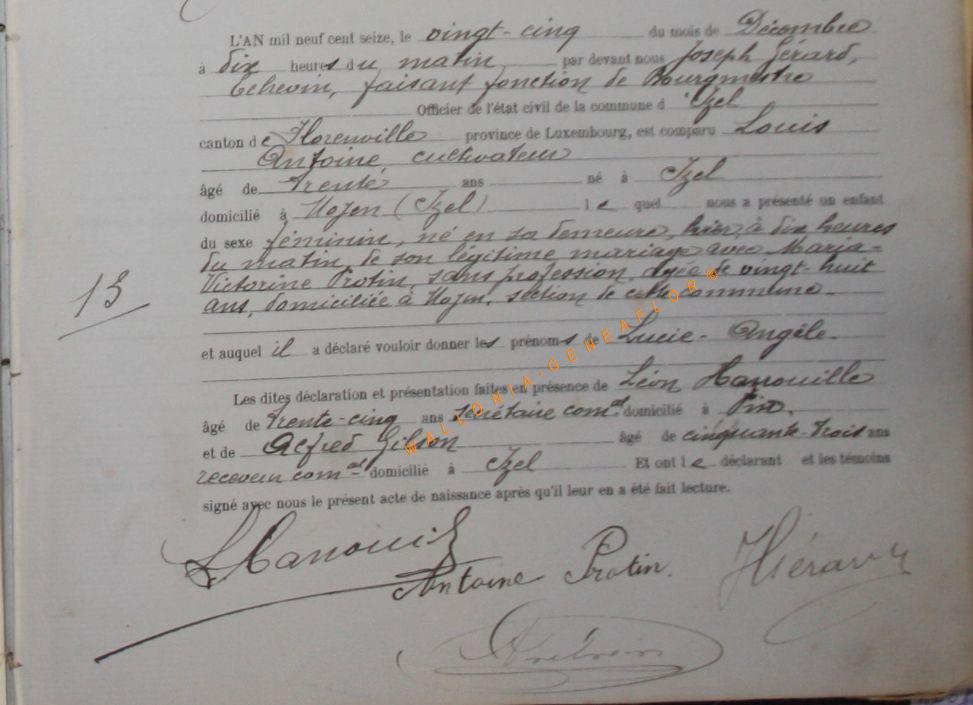 L'AN mil neuf cent seize, le vingt-cinq du mois de Décembre
à dix heures du matin par devant nous Joseph Gérard,
Echevin, faisant fonction de Bourgmestre
Officier de l'état civil de la commune d'Izel
canton de Florenville province de Luxembourg, est comparu Louis
Antoine, cultivateur
âgé de trente ans né à Izel
domicilié à Moyen (Izel) lequel nous a présenté un enfant
du sexe féminin, né en sa demeure, hier, à dix heures
du matin, de son légitime mariage avec Maria-
Victorine Protin, sans profession, âgée de vingt-huit
ans, domiciliée à Moyen, section de cette commune.
13
et auquel il a déclaré vouloir donner les prénoms de Lucie-Angèle.
Les dites déclaration et présentation faites en présence de Léon Hanouille
âgé de trente-cinq ans secrétaire comal domicilié à Pin.
et de Alfred Gilson âgé de cinquante-trois ans
receveur comal domicilié à Izel Et ont le déclarant et les témoins
signé avec nous le présent acte de naissance après qu'il leur en a été fait lecture.
Antoine Protin.
WALLONIA-GENEAFLORE